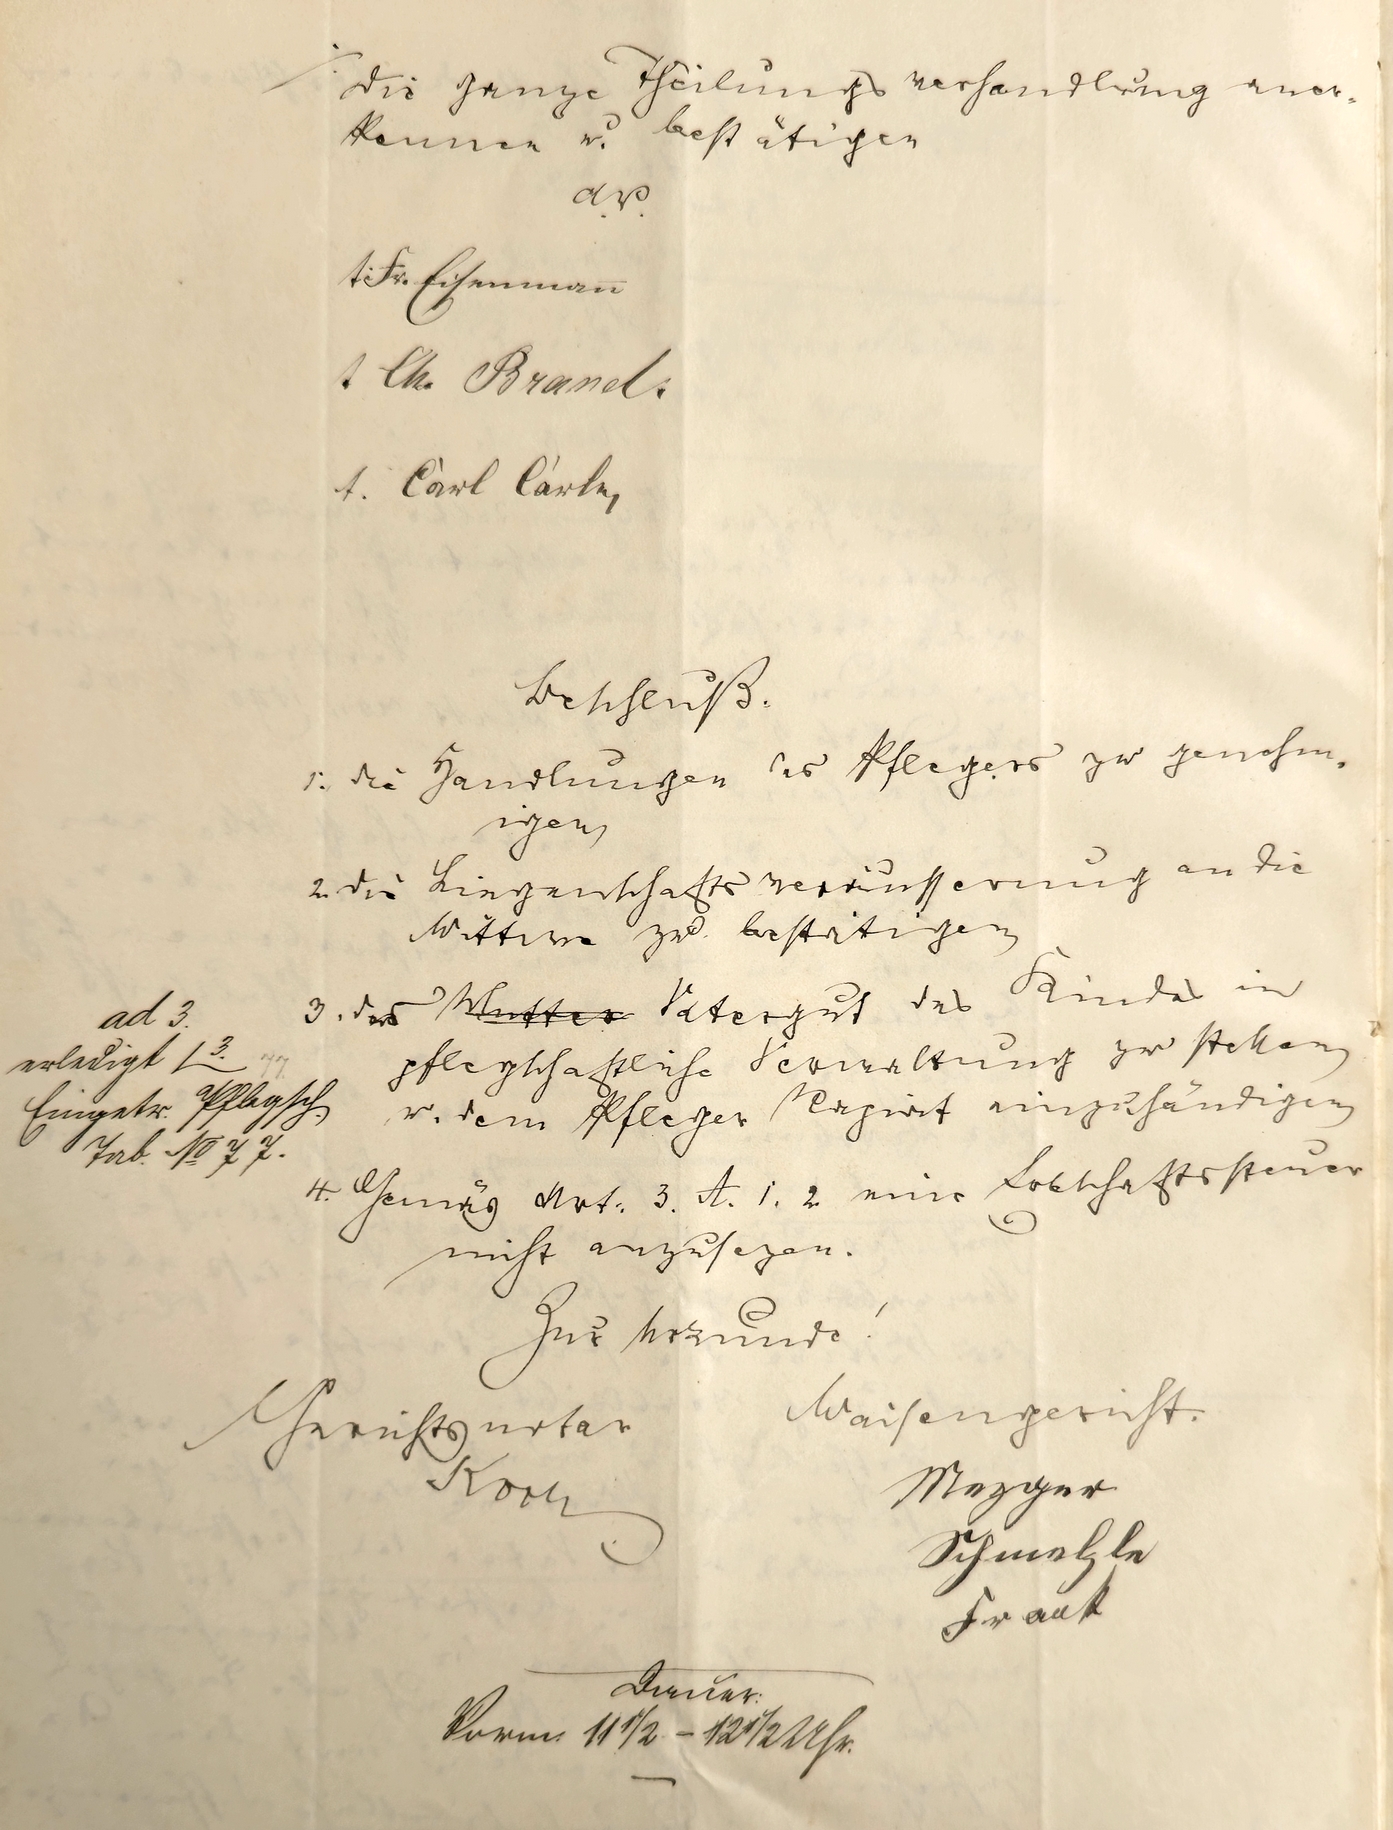 Die ganze Theilungsverhandlung aner-
kennen u. bestätigen
t. Fr. Eisenmann
t. Ch. Brand.
t. Carl Carle,
Beschluß.
1. die Handlungen des Pflegers zu genehm-
igen,
2. die Liegenschaftsveräusserung an die
Wittwe zu bestätigen,
3. das Mutter Vatergut des Kindes in
pflegschaftliche Verwaltung zu stellen,
u. dem Pfleger Rezirat einzuhändigen,
ad 3.
erledigt
Eingetr. Pflegsch.
Tab. No 77.
4. Gemäs Art. 3. A. 1. 2 eine Erbschaftssteuer
nicht anzusezen.
Zur Urkunde!
Gerichtsnotar
Koch
Waisengericht.
Mezger
Schmelzle
Frank
Dauer:
Vorm. 11 1/2 - 12 1/2 Uhr.